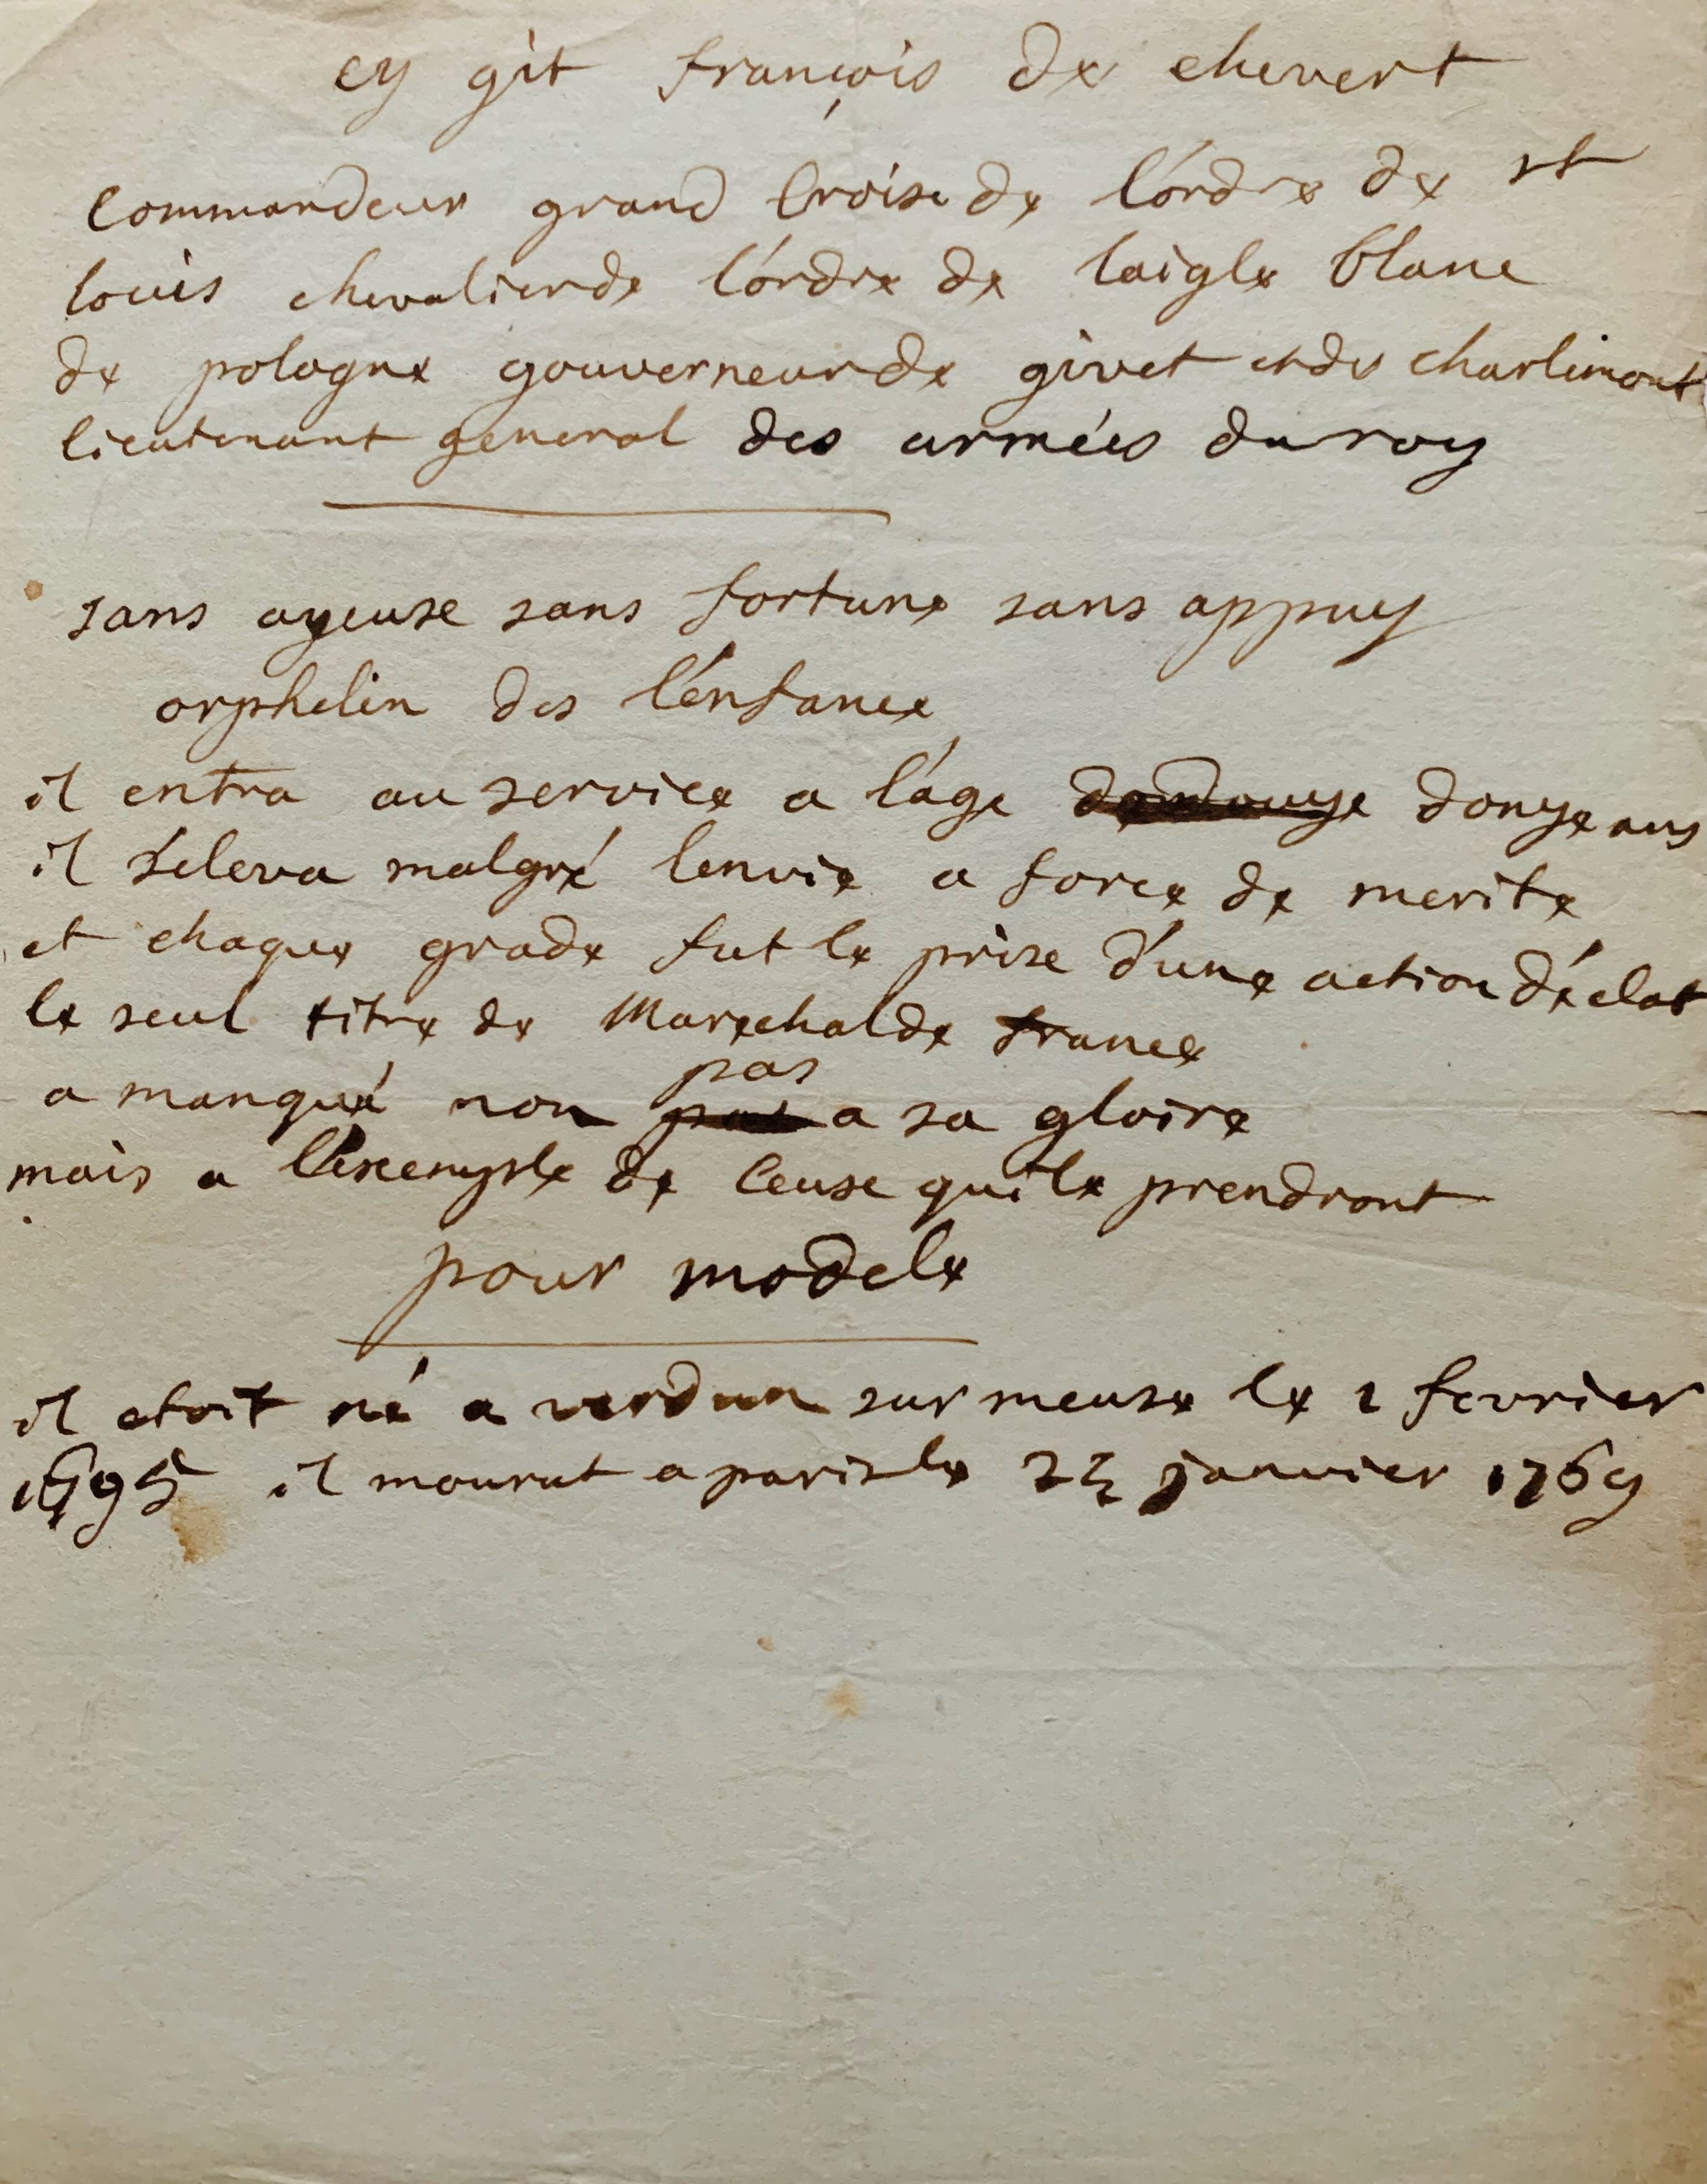 cy git françois de chevert
commandeur grand Croix de l'ordre de st
louis chevalier de l'ordre de laigle blanc
de pologne gouverneur de givet et de charlimont
lieutenant general des armées du roy
sans ayeux sans fortune sans appuy
orphelin des l'enfance
il entra au service a l'age donze ans
il s'eleva malgré lenvie a force de merite
et chaque grade fut le prix d'une action d'éclat
le seul titre de Marechal de france
pas
a manqué non a sa gloire
mais a l'exemple de ceux qui le prendront
pour modele
il etoit né a verdun sur meuse le 2 fevrier
1695 il mourut a paris le 24 janvier 1769